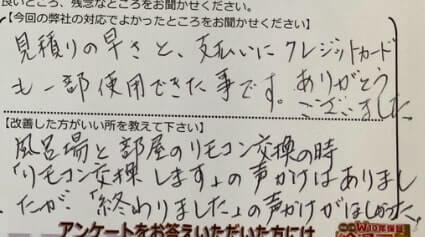 良いところ、残念なところをお聞かせください。
【今回の弊社の対応でよかったところをお聞かせください】
見積りの早さと、支払いにクレジットカード
も一部使用できた事です。ありがとう
ございました
【改善した方がいい所を教えて下さい】
風呂場と部屋のリモコン交換の時
「リモコン交換します」の声かけはありまし
たが「終わりました」の声かけがほしかった。
アンケートをお答えいただいた方には
W10年保証